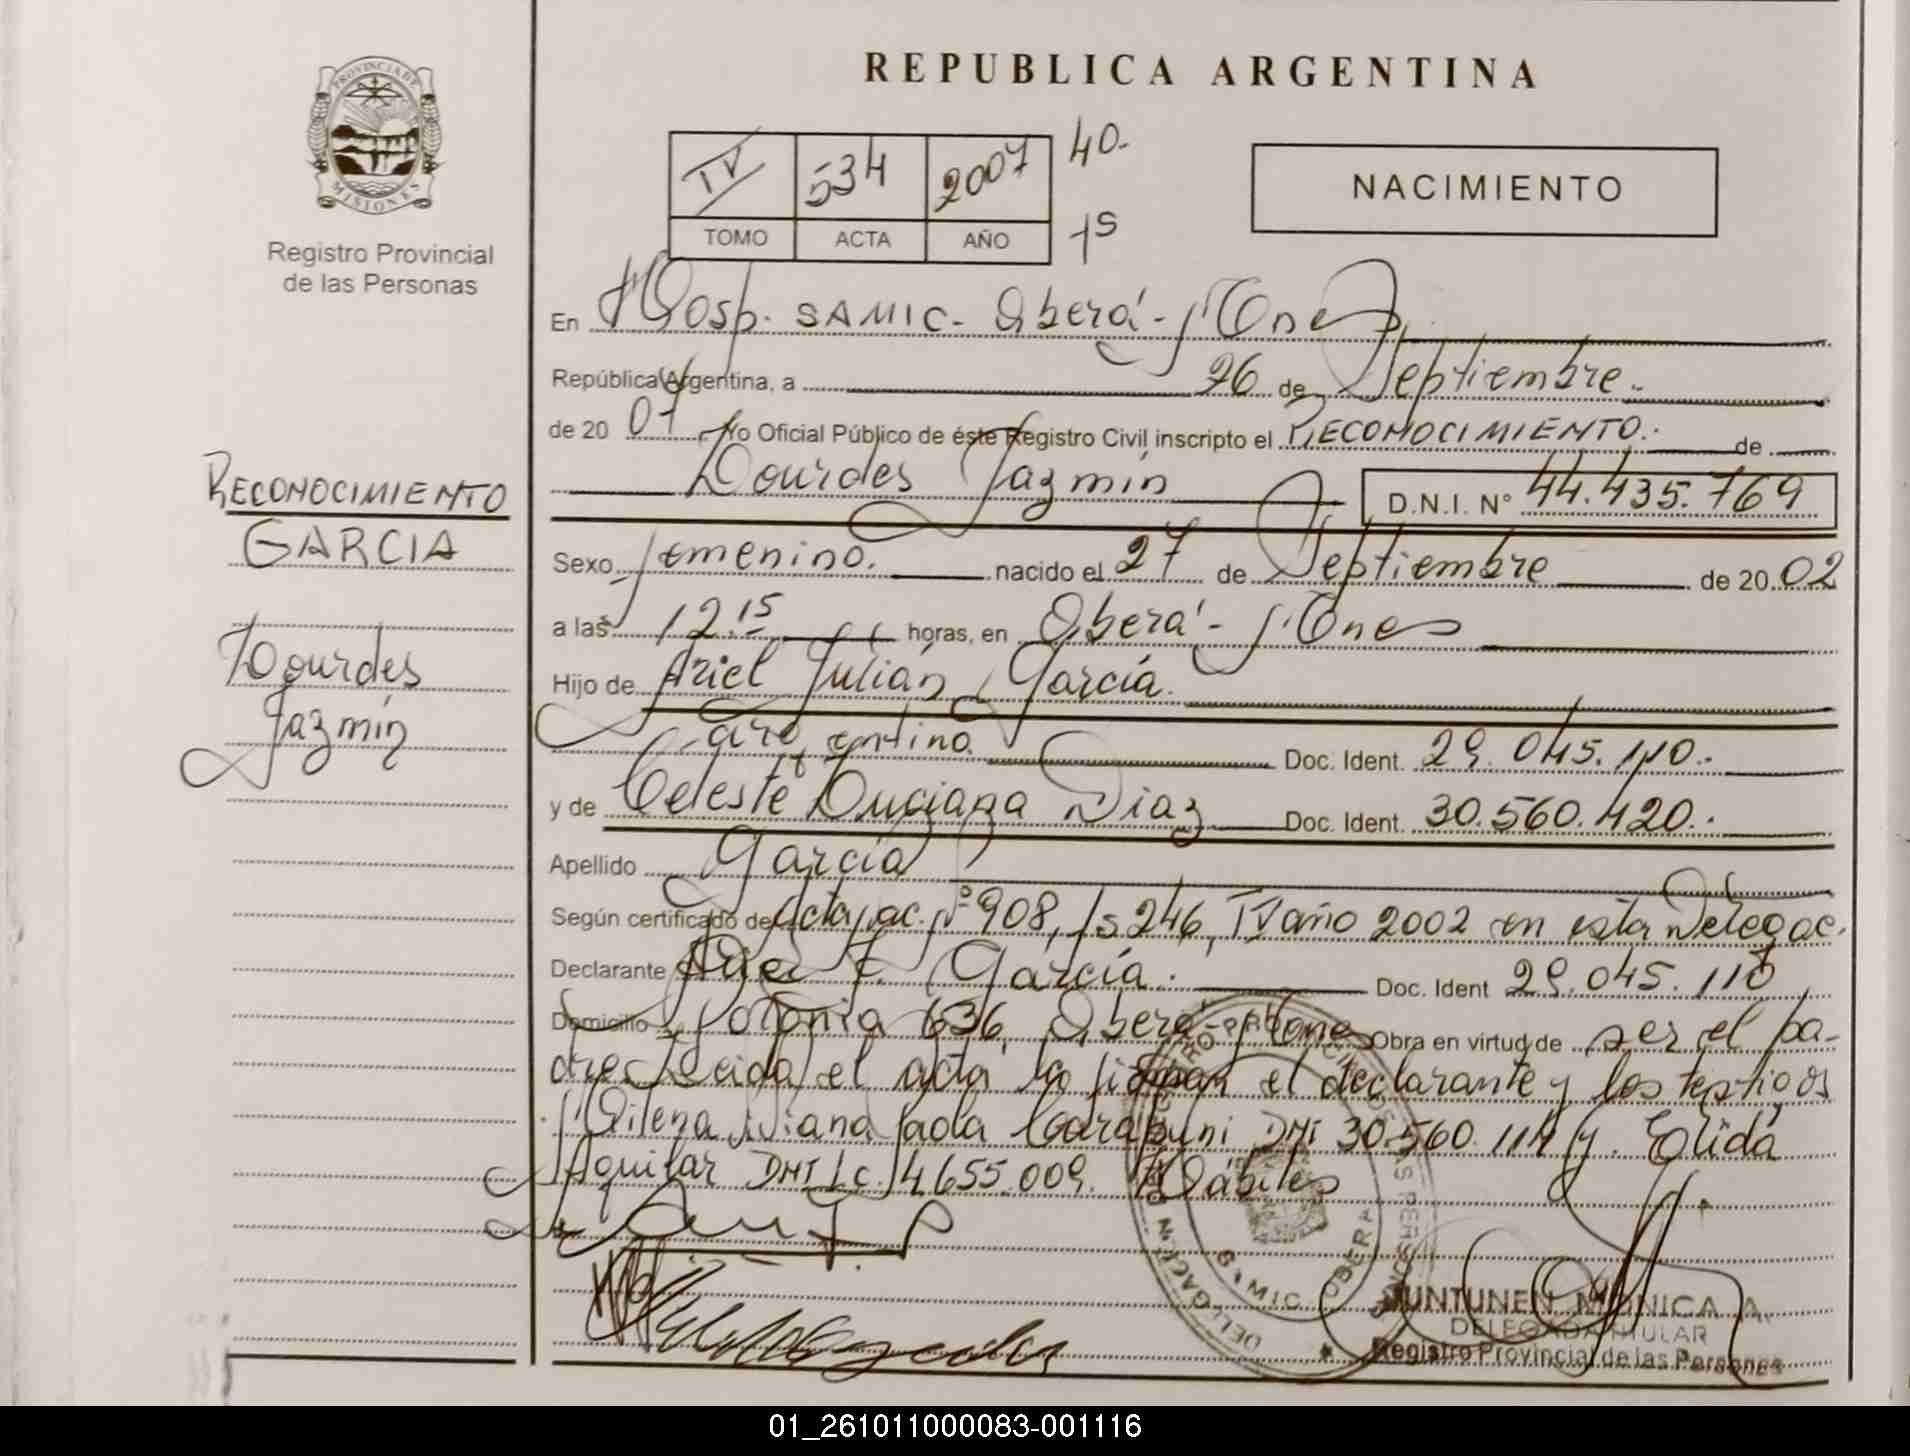 PROVINCIA DE
MISIONES
Registro Provincial
de las Personas
REPUBLICA ARGENTINA
IV 534 2007 40.
TOMO ACTA AÑO 15
NACIMIENTO
En Hosp. SAMIC - Oberá - Mnes
República Argentina, a 26 de Septiembre.
de 20 07 Yo Oficial Público de éste Registro Civil inscripto el RECONOCIMIENTO. de
Lourdes Jazmín D.N.I. N° 44.435.769
RECONOCIMIENTO
GARCIA
Lourdes
Jazmín
Sexo femenino. nacido el 27 de Septiembre de 20 02
a las 12.15 horas, en Oberá - Mnes
Hijo de Ariel Julián García.
argentino. Doc. Ident. 29.045.110.
y de Celeste Luciana Diaz Doc. Ident. 30.560.420.
Apellido García
Según certificado de Acta nac. Nº 908, fs 246, TV año 2002 en esta Delegac.
Declarante Ariel J. García. Doc. Ident 29.045.110
Domicilio Polonia 636, Oberá - Mnes Obra en virtud de ser el pa-
dre. Leida el acta la firman el declarante y los testigos
Milena Diana Paola DNI 30.560.114 y Elida
Aguilar DNI LC. 4.655.009. Hábiles
SAMIC OBERA
JUNTUNEN MONICA A.
DELEGADA TITULAR
Registro Provincial de las Personas
01_261011000083-001116